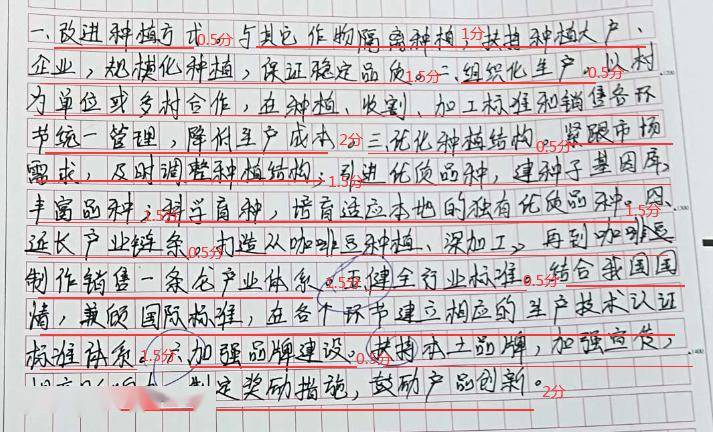 一、改进种植方式。0.5分 与其它作物隔离种植,1分 扶持种植大户、
企业,规模化种植,保证稳定品质。1.5分 二、组织化生产。0.5分 以村
为单位或多村合作,在种植、收割、加工标准和销售各环
节统一管理,降低生产成本。2分 三、优化种植结构。0.5分 紧跟市场
需求,及时调整种植结构;1.5分 引进优质品种,建种子基因库,
丰富品种;1.5分 科学育种,培育适应本地的独有优质品种。1.5分 四、
延长产业链条。0.5分 打造从咖啡豆种植、深加工,再到咖啡豆
制作销售一条龙产业体系。1.5分 五、健全行业标准。0.5分 结合我国国
情,兼顾国际标准,在各个环节建立相应的生产技术认证
标准体系。1.5分 六、加强品牌建设。0.5分 扶持本土品牌,加强宣传,
制定奖励措施,鼓励产品创新。2分